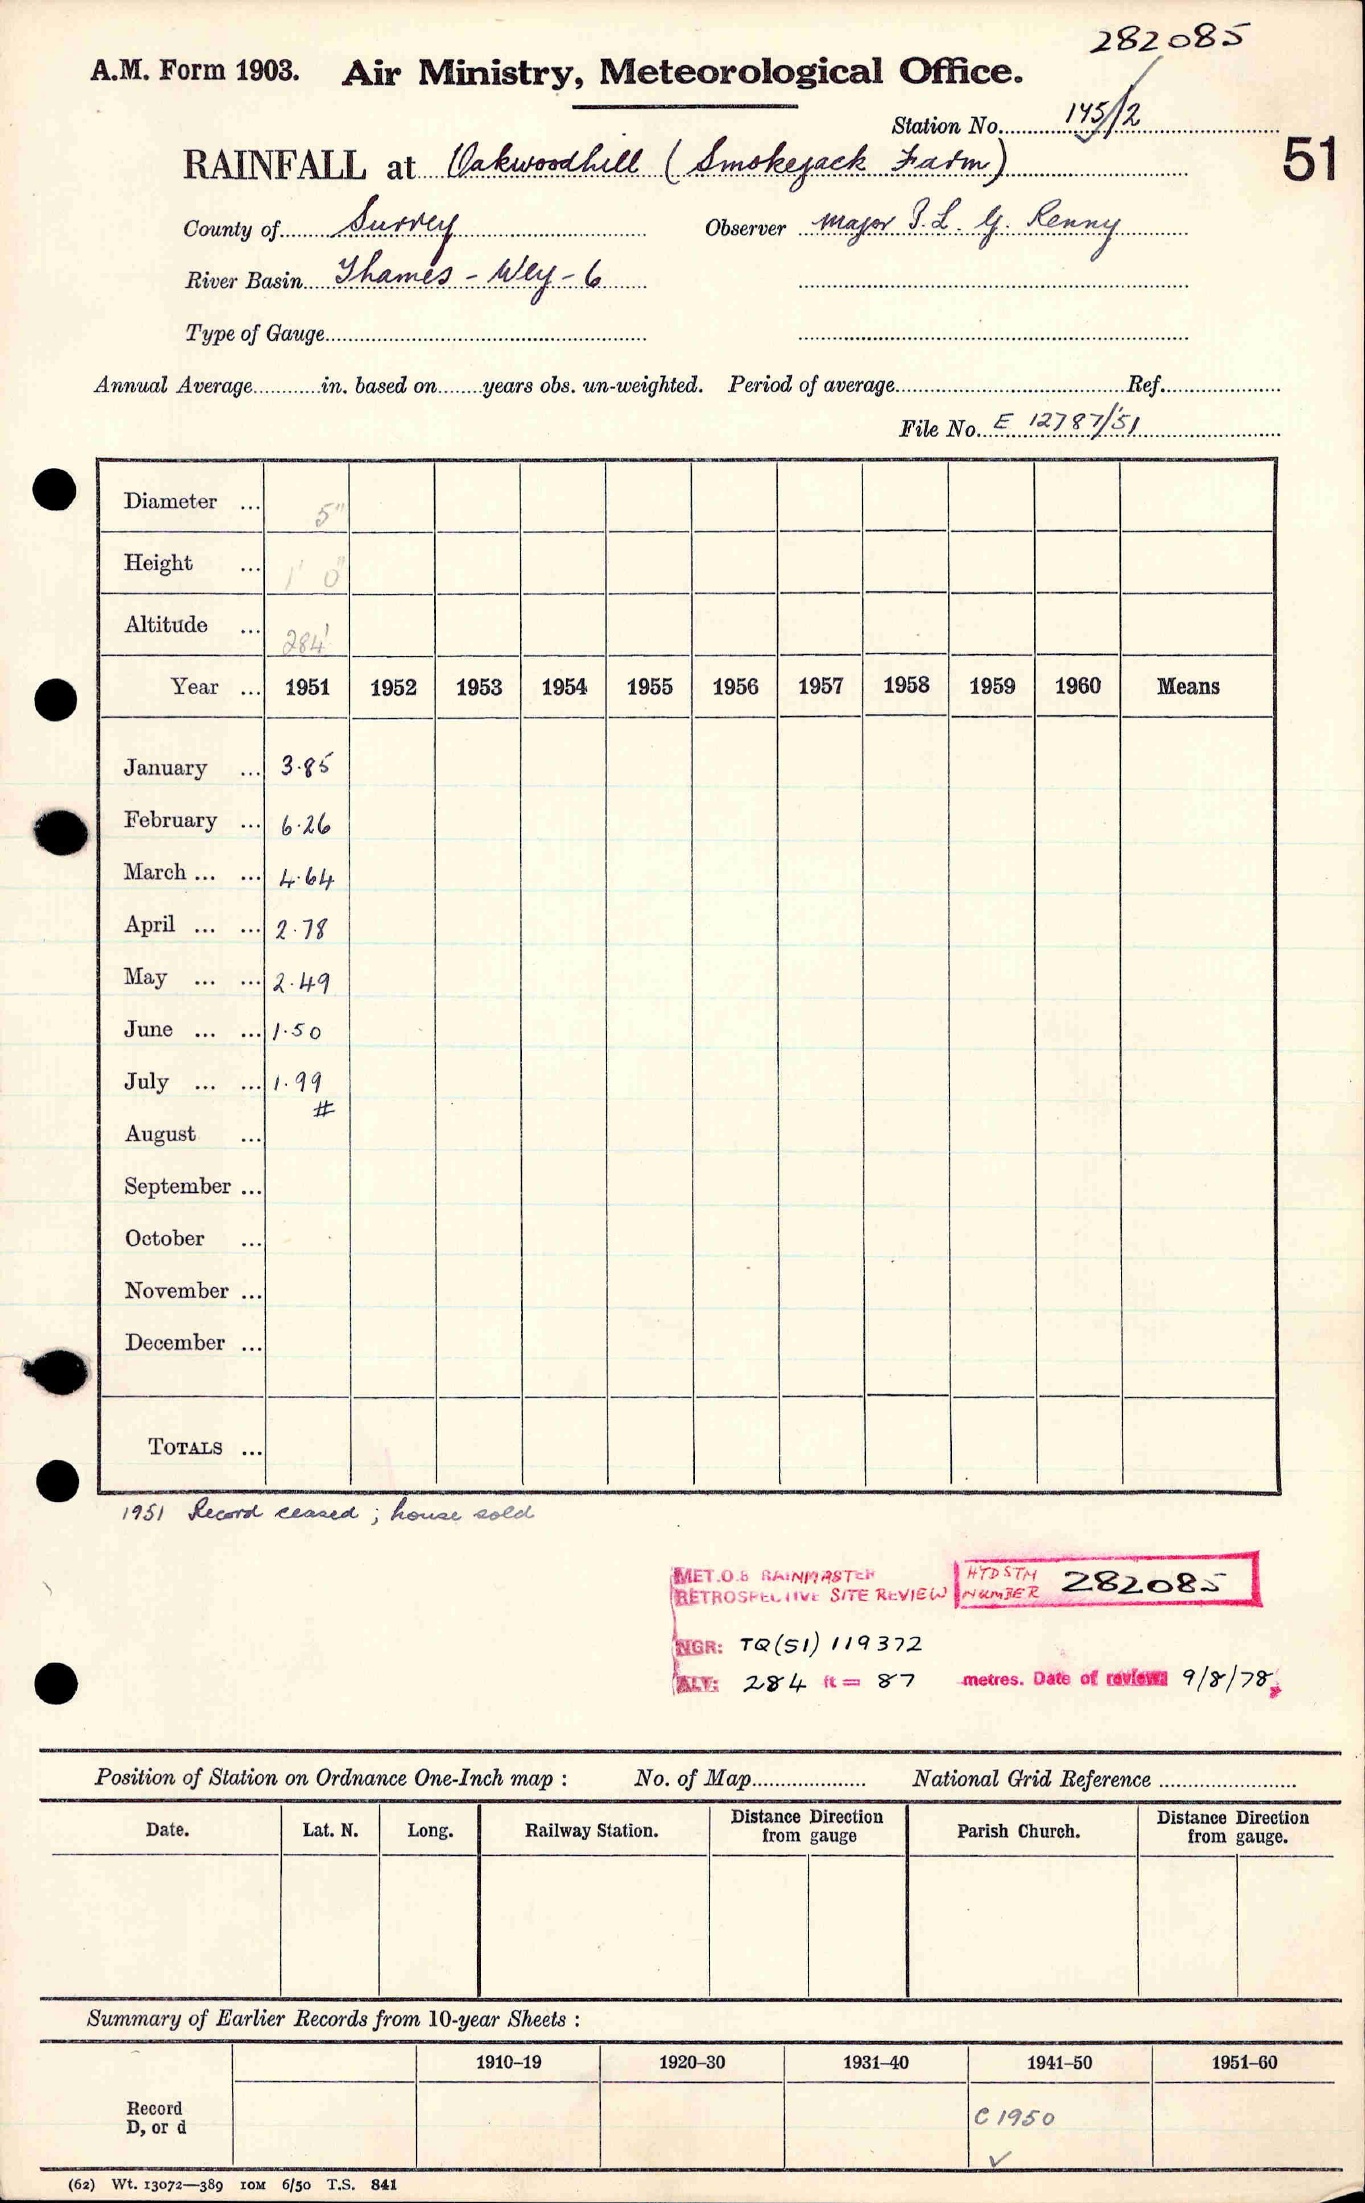 282085
A.M. Form 1903. Air Ministry, Meteorological Office.
Station No. 145/2
RAINFALL at Oakwoodhill (Smokejack Farm)
51
County of Surrey Observer Major I. L. G. Renny
River Basin Thames - Wey - 6
Type of Gauge
Annual Average in. based on years obs. un-weighted. Period of average Ref.
File No. E 12787/51
Diameter ... 5"
Height ... 1' 0"
Altitude ... 284'
Year ... 1951 1952 1953 1954 1955 1956 1957 1958 1959 1960 Means
January ... 3.85
February ... 6.26
March ... ... 4.64
April ... ... 2.78
May ... ... 2.49
June ... ... 1.50
July ... ... 1.99
#
August ...
September ...
October ...
November ...
December ...
TOTALS ...
1951 Record ceased ; house sold
MET.O.8 RAINMASTER HYDSTN
RETROSPECTIVE SITE REVIEW NUMBER 282085
NGR: TQ(51) 119372
ALT: 284 ft = 87 metres. Date of review 9/8/78
Position of Station on Ordnance One-Inch map : No. of Map National Grid Reference
Date. Lat. N. Long. Railway Station. Distance Direction from gauge Parish Church. Distance Direction from gauge.
Summary of Earlier Records from 10-year Sheets :
1910–19 1920–30 1931–40 1941–50 1951–60
Record
D, or d C 1950
(62) Wt. 13072—389 10M 6/50 T.S. 841